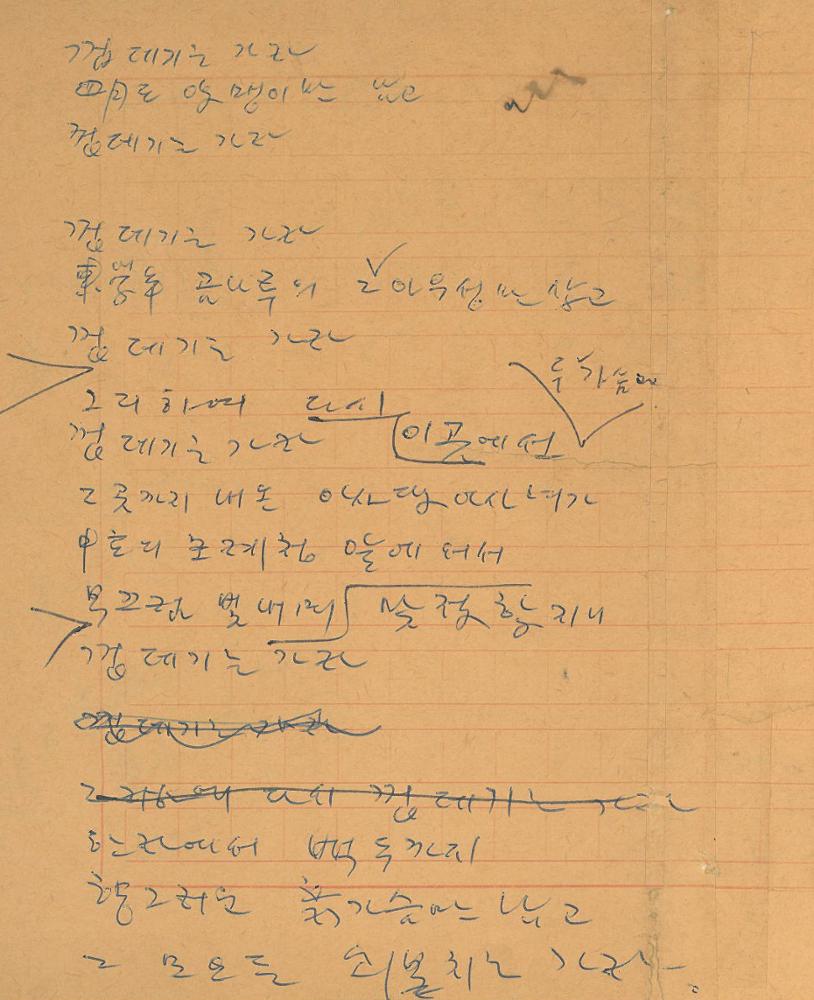 껍데기는 가라
四月도 알맹이만 남고
껍데기는 가라
껍데기는 가라
東學年 곰나루의 그 아우성만 살고
껍데기는 가라
그리하여 다시
껍데기는 가라
이곳에선
두 가슴과
그곳까지 내논 아사달 아사녀가
中立의 초례청 앞에 서서
부끄럼 빛내며 맞절할지니
껍데기는 가라
껍데기는 가라
그리하여 다시 껍데기는 가라
한라에서 백두까지
향그러운 흙가슴만 남고
그 모오든 쇠붙이는 가라.